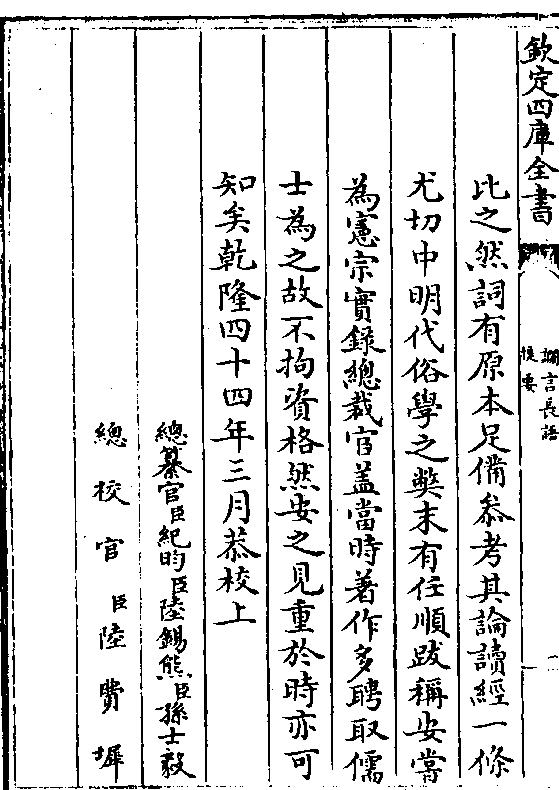 欽定四庫全書
讕言長語
提要
一
比之然詞有原本足備參考其論讀經一條
尤切中明代俗學之弊末有任順跋稱安嘗
為憲宗實錄總裁官盖當時著作多聘取儒
士為之故不拘資格然安之見重於時亦可
知矣乾隆四十四年三月恭校上
總纂官臣紀昀臣陸錫熊臣孫士毅
總校官臣陸費墀